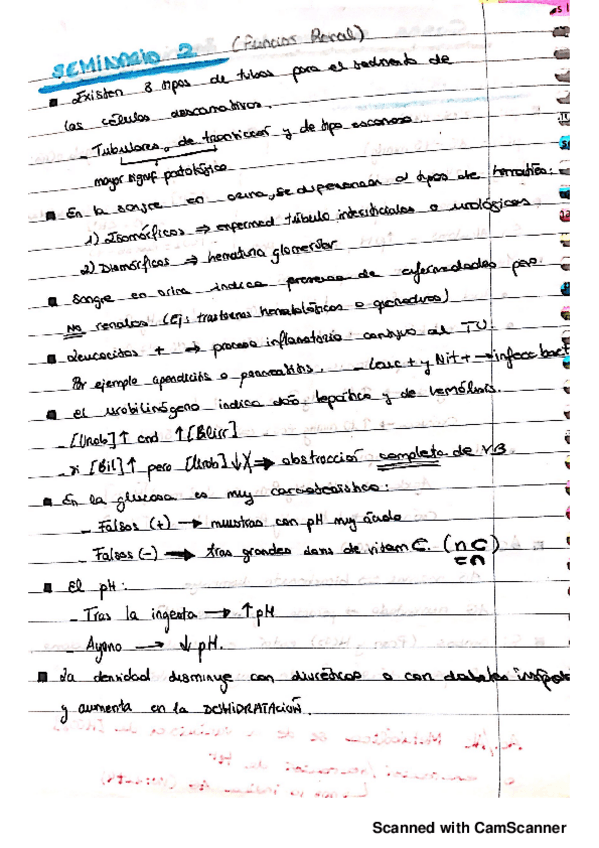 SEMINARIO 2 (Función Renal)
▪ Existen 3 tipos de tubos para el sedimento de
las células descamativas.
- Tubulares, de transición y de tipo escamoso
mayor signif. patológico
▪ En la sangre en orina, se diferencian 2 tipos de hematíes:
1) Isomórficos ⇒ enfermed túbulo intersticiales o urológicas
2) Dismórficos ⇒ hematuria glomerular
▪ Sangre en orina indica presencia de enfermedades pero
no renales (Ej: trastornos hematológicos o )
▪ Leucocitos + → proceso inflamatorio contiguo al TU.
Por ejemplo apendicitis o pancreatitis. - Leuc + y Nit + → infecc bact
▪ El urobilinógeno indica daño hepático y de hemólisis.
- [Urob] ↑ cnd ↑ [Blirr]
- si [Bil] ↑ pero [Urob] ↓ ⇒ obstrucción completa de VB
▪ En la glucosa es muy característico:
- Falsos (+) → muestras con pH muy ácido
- Falsos (-) → tras grandes dosis de vitam C. (n C)
= n
▪ El pH:
- Tras la ingesta → ↑ pH
- Ayuno → ↓ pH.
▪ La densidad disminuye con diuréticos o con diabetes insípida
y aumenta en la DESHIDRATACIÓN.
Scanned with CamScanner